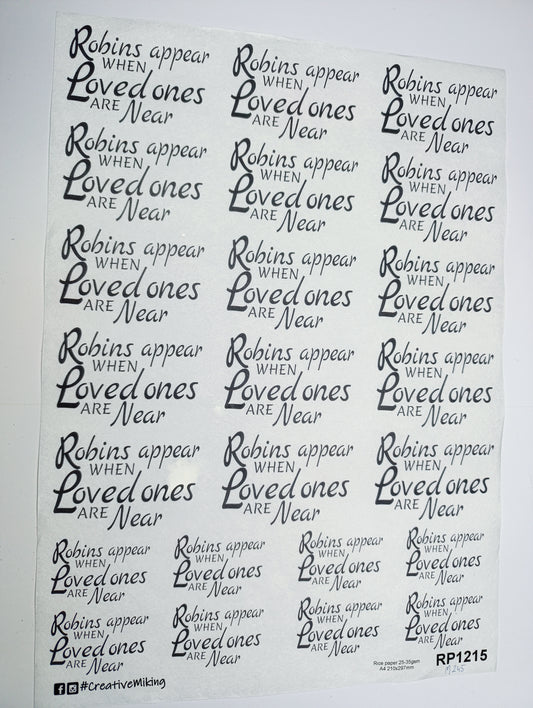 Robins appear
WHEN
Loved ones
ARE Near
Robins appear
WHEN
Loved ones
ARE Near
Robins appear
WHEN
Loved ones
ARE Near
Robins appear
WHEN
Loved ones
ARE Near
Robins appear
WHEN
Loved ones
ARE Near
Robins appear
WHEN
Loved ones
ARE Near
Robins appear
WHEN
Loved ones
ARE Near
Robins appear
WHEN
Loved ones
ARE Near
Robins appear
WHEN
Loved ones
ARE Near
Robins appear
WHEN
Loved ones
ARE Near
Robins appear
WHEN
Loved ones
ARE Near
Robins appear
WHEN
Loved ones
ARE Near
Robins appear
WHEN
Loved ones
ARE Near
Robins appear
WHEN
Loved ones
ARE Near
Robins appear
WHEN
Loved ones
ARE Near
Robins appear
WHEN
Loved ones
ARE Near
Robins appear
WHEN
Loved ones
ARE Near
Robins appear
WHEN
Loved ones
ARE Near
Robins appear
WHEN
Loved ones
ARE Near
Robins appear
WHEN
Loved ones
ARE Near
Robins appear
WHEN
Loved ones
ARE Near
Robins appear
WHEN
Loved ones
ARE Near
Robins appear
WHEN
Loved ones
ARE Near
#CreativeMiking
Rice paper 25-35gsm
A4 210x297mm
RP1215